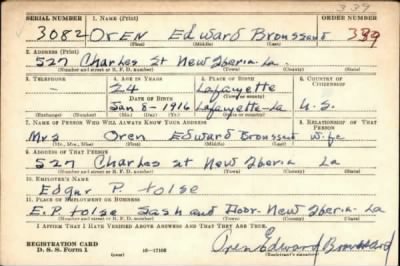 339
SERIAL NUMBER 1. NAME (Print) ORDER NUMBER
3082 OrEN Edward Broussard 339
(First) (Middle) (Last)
2. ADDRESS (Print)
527 Charles St New Iberia La.
(Number and street or R. F. D. number) (Town) (County) (State)
3. TELEPHONE 4. AGE IN YEARS 5. PLACE OF BIRTH 6. COUNTRY OF CITIZENSHIP
— 24 Lafayette
DATE OF BIRTH (Town or county)
Jan 8-1916 Lafayette-La U.S.
(Exchange) (Number) (Mo.) (Day) (Yr.) (State or country)
7. NAME OF PERSON WHO WILL ALWAYS KNOW YOUR ADDRESS 8. RELATIONSHIP OF THAT PERSON
Mrs Oren Edward Broussard wife
(Mr., Mrs., Miss) (First) (Middle) (Last)
9. ADDRESS OF THAT PERSON
527 Charles st New Iberia La
(Number and street or R. F. D. number) (Town) (County) (State)
10. EMPLOYER'S NAME
Edgar P. tolse
11. PLACE OF EMPLOYMENT OR BUSINESS
E. P tolse Sash and Door-New Iberia-La
(Number and street or R. F. D. number) (Town) (County) (State)
I AFFIRM THAT I HAVE VERIFIED ABOVE ANSWERS AND THAT THEY ARE TRUE.
REGISTRATION CARD
D. S. S. Form 1 16—17105 Oren Edward Broussard
(Registrant's signature)